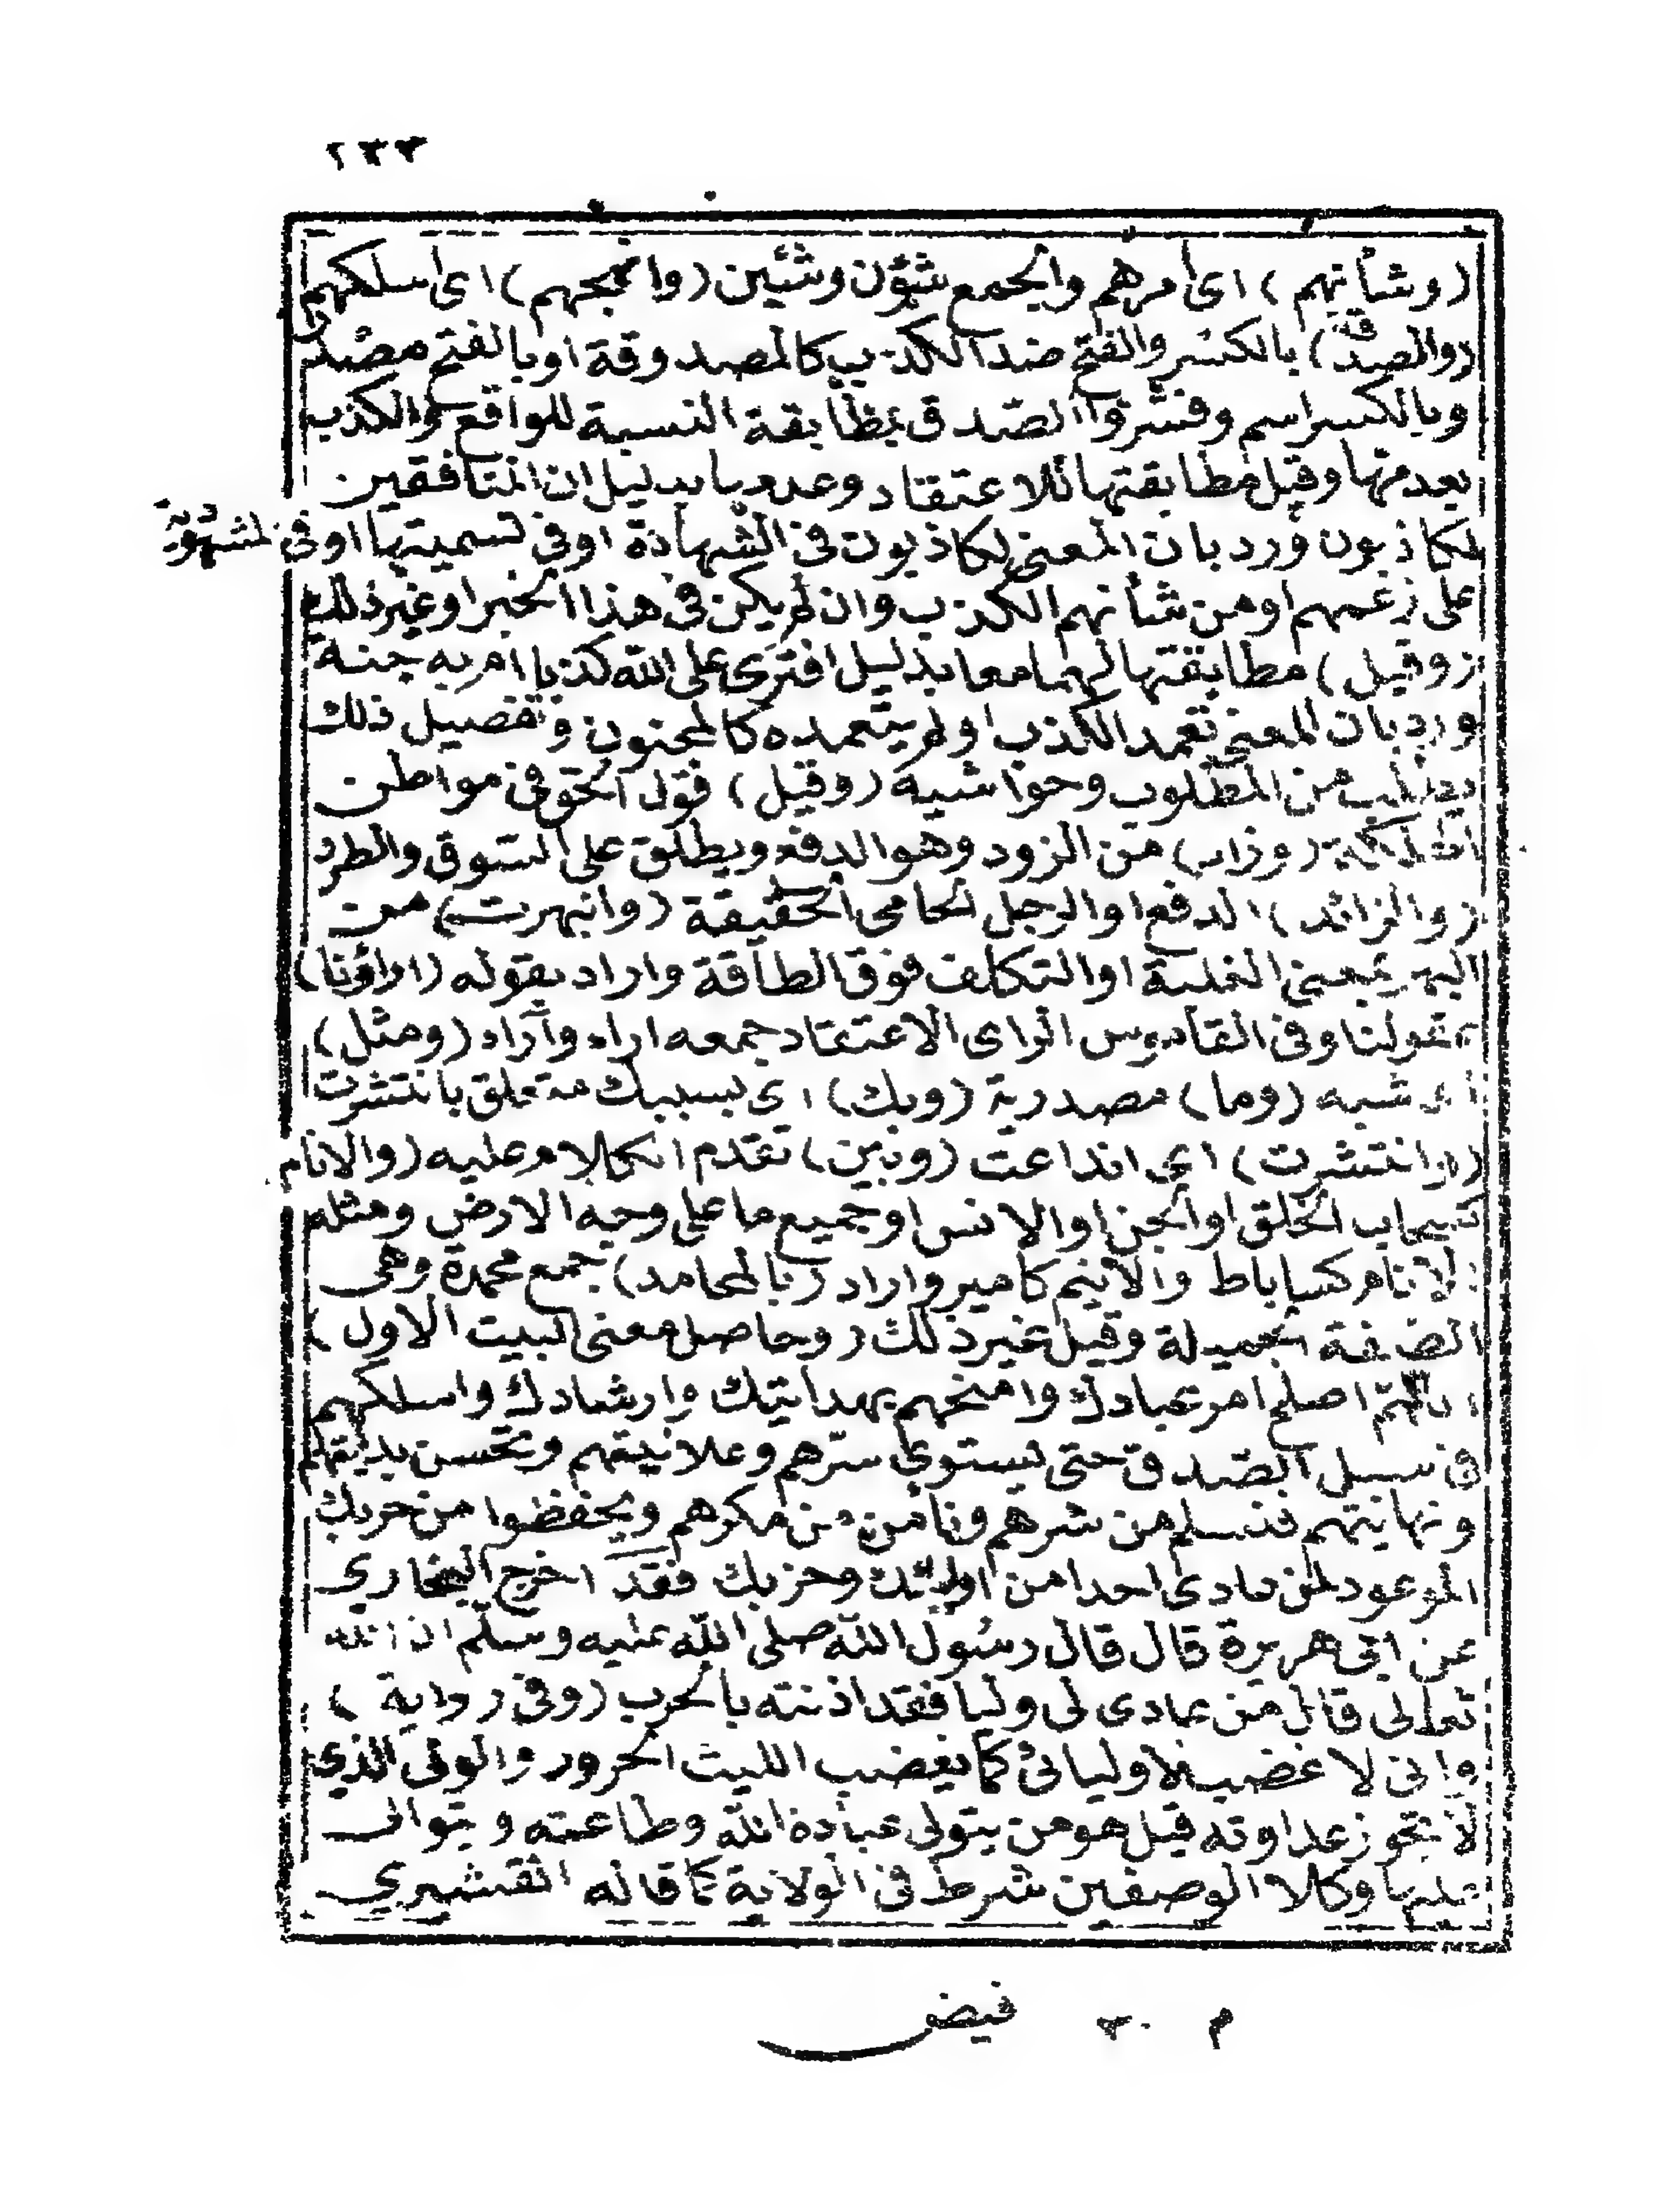 ٢٣٣
(وشأنهم) اى امرهم والجمع شؤن وشئين (وانهجهم) اى اسلكهم
(والصدق) بالكسر والفتح ضد الكذب كالمصدوقة او بالفتح مصدر
وبالكسر اسم وفسّروا الصّدق بمطابقة النسبة للواقع والكذب
بعدمها وقيل مطابقتها للاعتقاد وعدمها بدليل ان المنافقين
لكاذبون ورد بان المعنى لكاذبون فى الشهادة او فى تسميتها او فى المشهود به
على زعمهم او من شأنهم الكذب وان لم يكن فى هذا الخبر او غير ذلك
(وقيل) مطابقتها لهما معا بدليل افترى على الله كذبا ام به جنة
ورد بان المعنى تعمد الكذب او لم يتعمده كالمجنون وتفصيل ذلك
يطلب من المطلوب وحواشيه (وقيل) قول الحق فى مواطن
الهلكة (وزد) من الزود وهو الدفع ويطلق على السوق والطرد
(والزائد) الدفع او الرجل الحامى الحقيقة (وانبهرت) من
البهر بمعنى الغلبة او التكلف فوق الطاقة واراد بقوله (اراؤنا)
عقولنا وفى القاموس الراى الاعتقاد جمعه اراء وآراء (ومثل)
اى شبه (وما) مصدرية (وبك) اى بسببك متعلق بانتشرت
(وانتشرت) اى انذاعت (وبين) تقدم الكلام عليه (والانام
كسحاب الخلق او الجن او الانس او جميع ما على وجه الارض ومثله
الآنام كساباط والانيم كامير واراد (بالمحامد) جمع محمدة وهى
الصفة الجميلة وقيل غير ذلك (وحاصل معنى البيت الاول)
اللهمّ اصلح امر عبادك وامنحهم بهدايتك وارشادك واسلكهم
فى سبيل الصّدق حتى يستوي سرّهم وعلانيتهم وتحسن بدايتهم
ونهايتهم فنسلم من شرهم ونأمن من مكرهم ويحفظوا من حربك
الموعود لمن عادى احدا من اوليائك وحزبك فقد اخرج البخاري
عن ابى هريرة قال قال رسول الله صلى الله عليه وسلّم ان الله
تعالى قال من عادى لى وليا فقد اذنته بالحرب (وفى رواية)
وانى لاغضب لاوليائى كما يغضب الليث الحرور والولى الذي
لا تجوز عداوته قيل هو من يتولى عبادة الله وطاعته ويتوالى
عليها وكلا الوصفين شرط فى الولاية كما قاله القشيري
م ٣٠ فيض